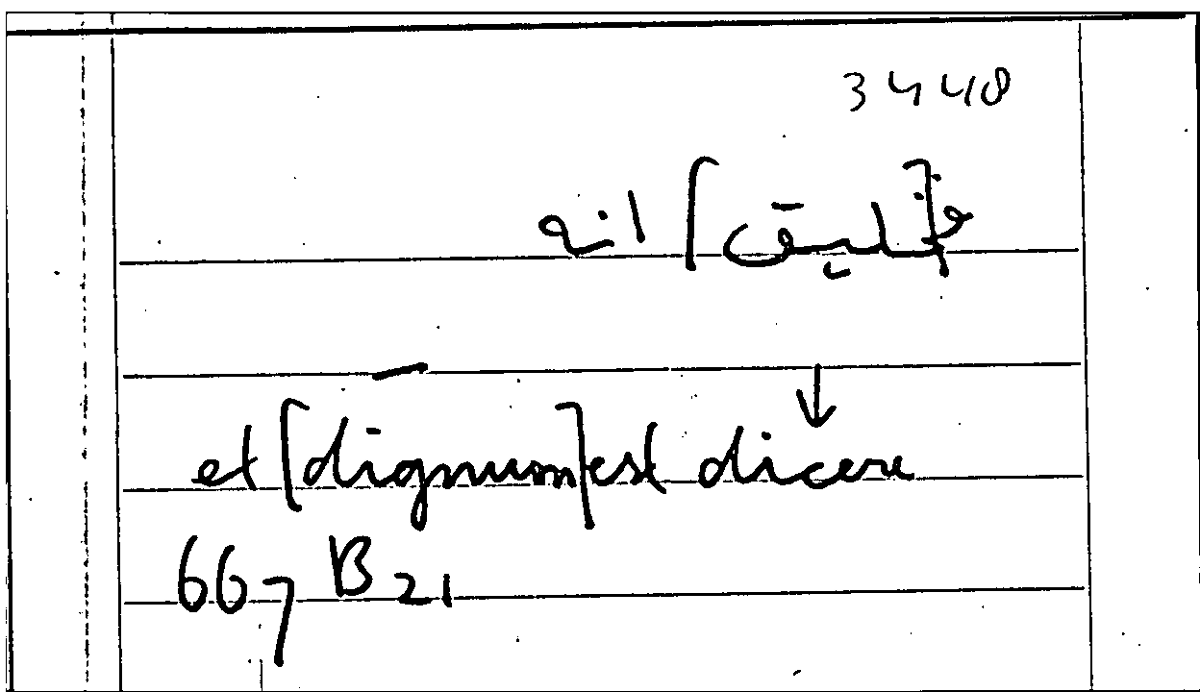 3448
ف[خليق] انه
— ↓
et [dignum] est dicere
667 B 21